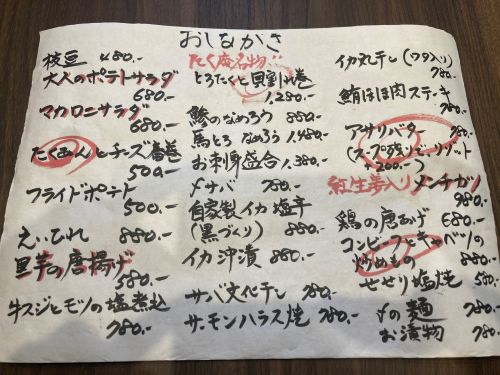 おしながき
枝豆 480.-
大人のポテトサラダ
680.-
マカロニサラダ
680.-
たくあんとチーズ春巻
500.-
フライドポテト
500.-
えいひれ 880.-
里芋の唐揚げ
580.-
牛スジとモツの塩煮込
780.-
たく庵名物!!
とろたくと貝割れ巻
1,280.-
鯵のなめろう 880.-
馬とろ なめろう 1,480.-
お刺身盛合 1,380.-
〆サバ 780.-
自家製イカ塩辛
(黒づくり) 880.-
イカ沖漬 880.-
サバ文化干し 780.-
サーモンハラス焼 780.-
イカ丸干し(ワタ入り)
780.-
鮪ほほ肉ステーキ
780.-
アサリバター 780.-
(スープ残りでリゾット
+200.-)
紅生姜入りメンチカツ
980.-
鶏の唐あげ 680.-
コンビーフとキャベツの
炒めもの 880.-
せせり塩焼 580.-
〆の麺 780.-
お漬物 780.-